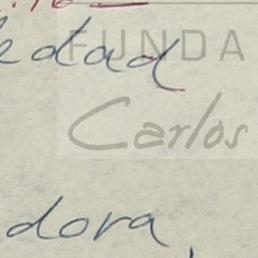 edad
FUNDA
Carlos
dora,